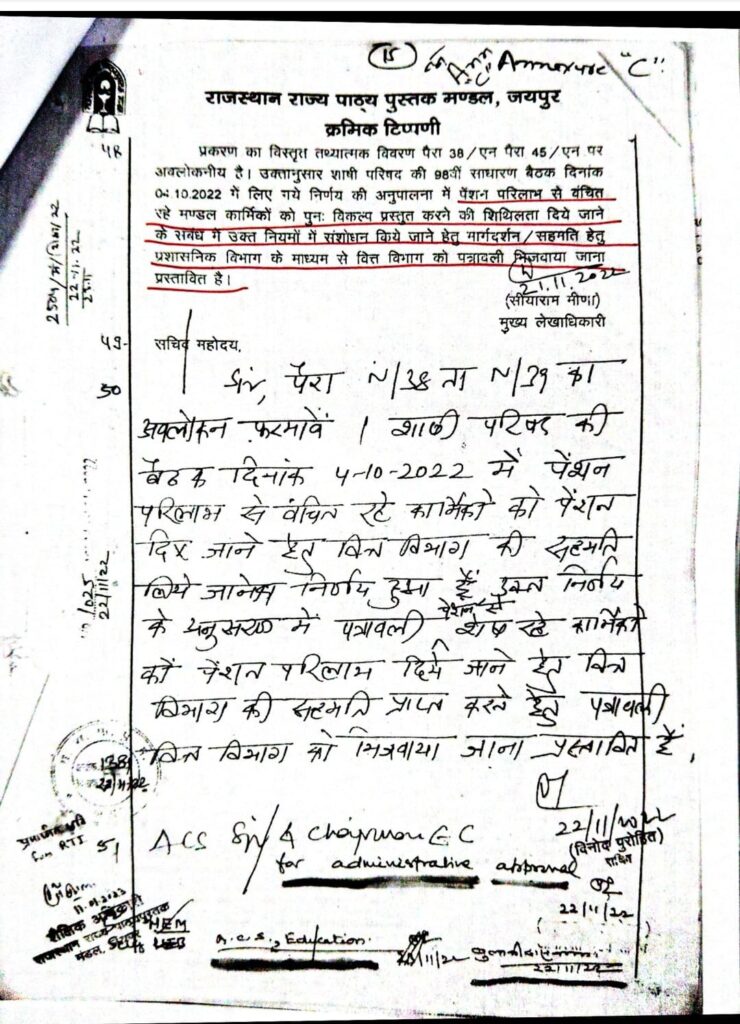 15 Annexure "C"
राजस्थान राज्य पाठ्य पुस्तक मण्डल, जयपुर
क्रमिक टिप्पणी
48
प्रकरण का विस्तृत तथ्यात्मक विवरण पैरा 38/एन पैरा 45/एन पर
अवलोकनीय है। उक्तानुसार शाषी परिषद की 98वीं साधारण बैठक दिनांक
04.10.2022 में लिए गये निर्णय की अनुपालना में पेंशन परिलाभ से वंचित
रहे मण्डल कार्मिकों को पुनः विकल्प प्रस्तुत करने की शिथिलता दिये जाने
के संबंध में उक्त नियमों में संशोधन किये जाने हेतु मार्गदर्शन/सहमति हेतु
प्रशासनिक विभाग के माध्यम से वित्त विभाग को पत्रावली भिजवाया जाना
प्रस्तावित है।
21.11.2022
(सीयाराम मीणा)
मुख्य लेखाधिकारी
49- सचिव महोदय,
50 Sir, पैरा N/38 ता N/39 का
अवलोकन फरमावें । शाषी परिषद की
बैठक दिनांक 4-10-2022 में पेंशन
परिलाभ से वंचित रहे कार्मिको को पेंशन
दिए जाने हेतु वित्त विभाग की सहमति
लिये जानेका निर्णय हुआ है उक्त निर्णय
के अनुसरण में पत्रावली पेंशन से शेष रहे कार्मिको
को पेंशन परिलाभ दिये जाने हेतु वित्त
विभाग की सहमति प्राप्त करने हेतु पत्रावली
वित्त विभाग को भिजवाया जाना प्रस्तावित है.
22/11/2022
(विनोद पुरोहित)
सचिव
51 ACS Sir & Chairman E.C
for administrative approval
22/11/22
A.C.S., Education
22/11/22
22/11/22
1025
22/11/22
1381
22/11/22
प्रमाणित प्रति
from RTI
शैक्षिक अधिकारी
राजस्थान राज्य पाठ्यपुस्तक
मंडल,